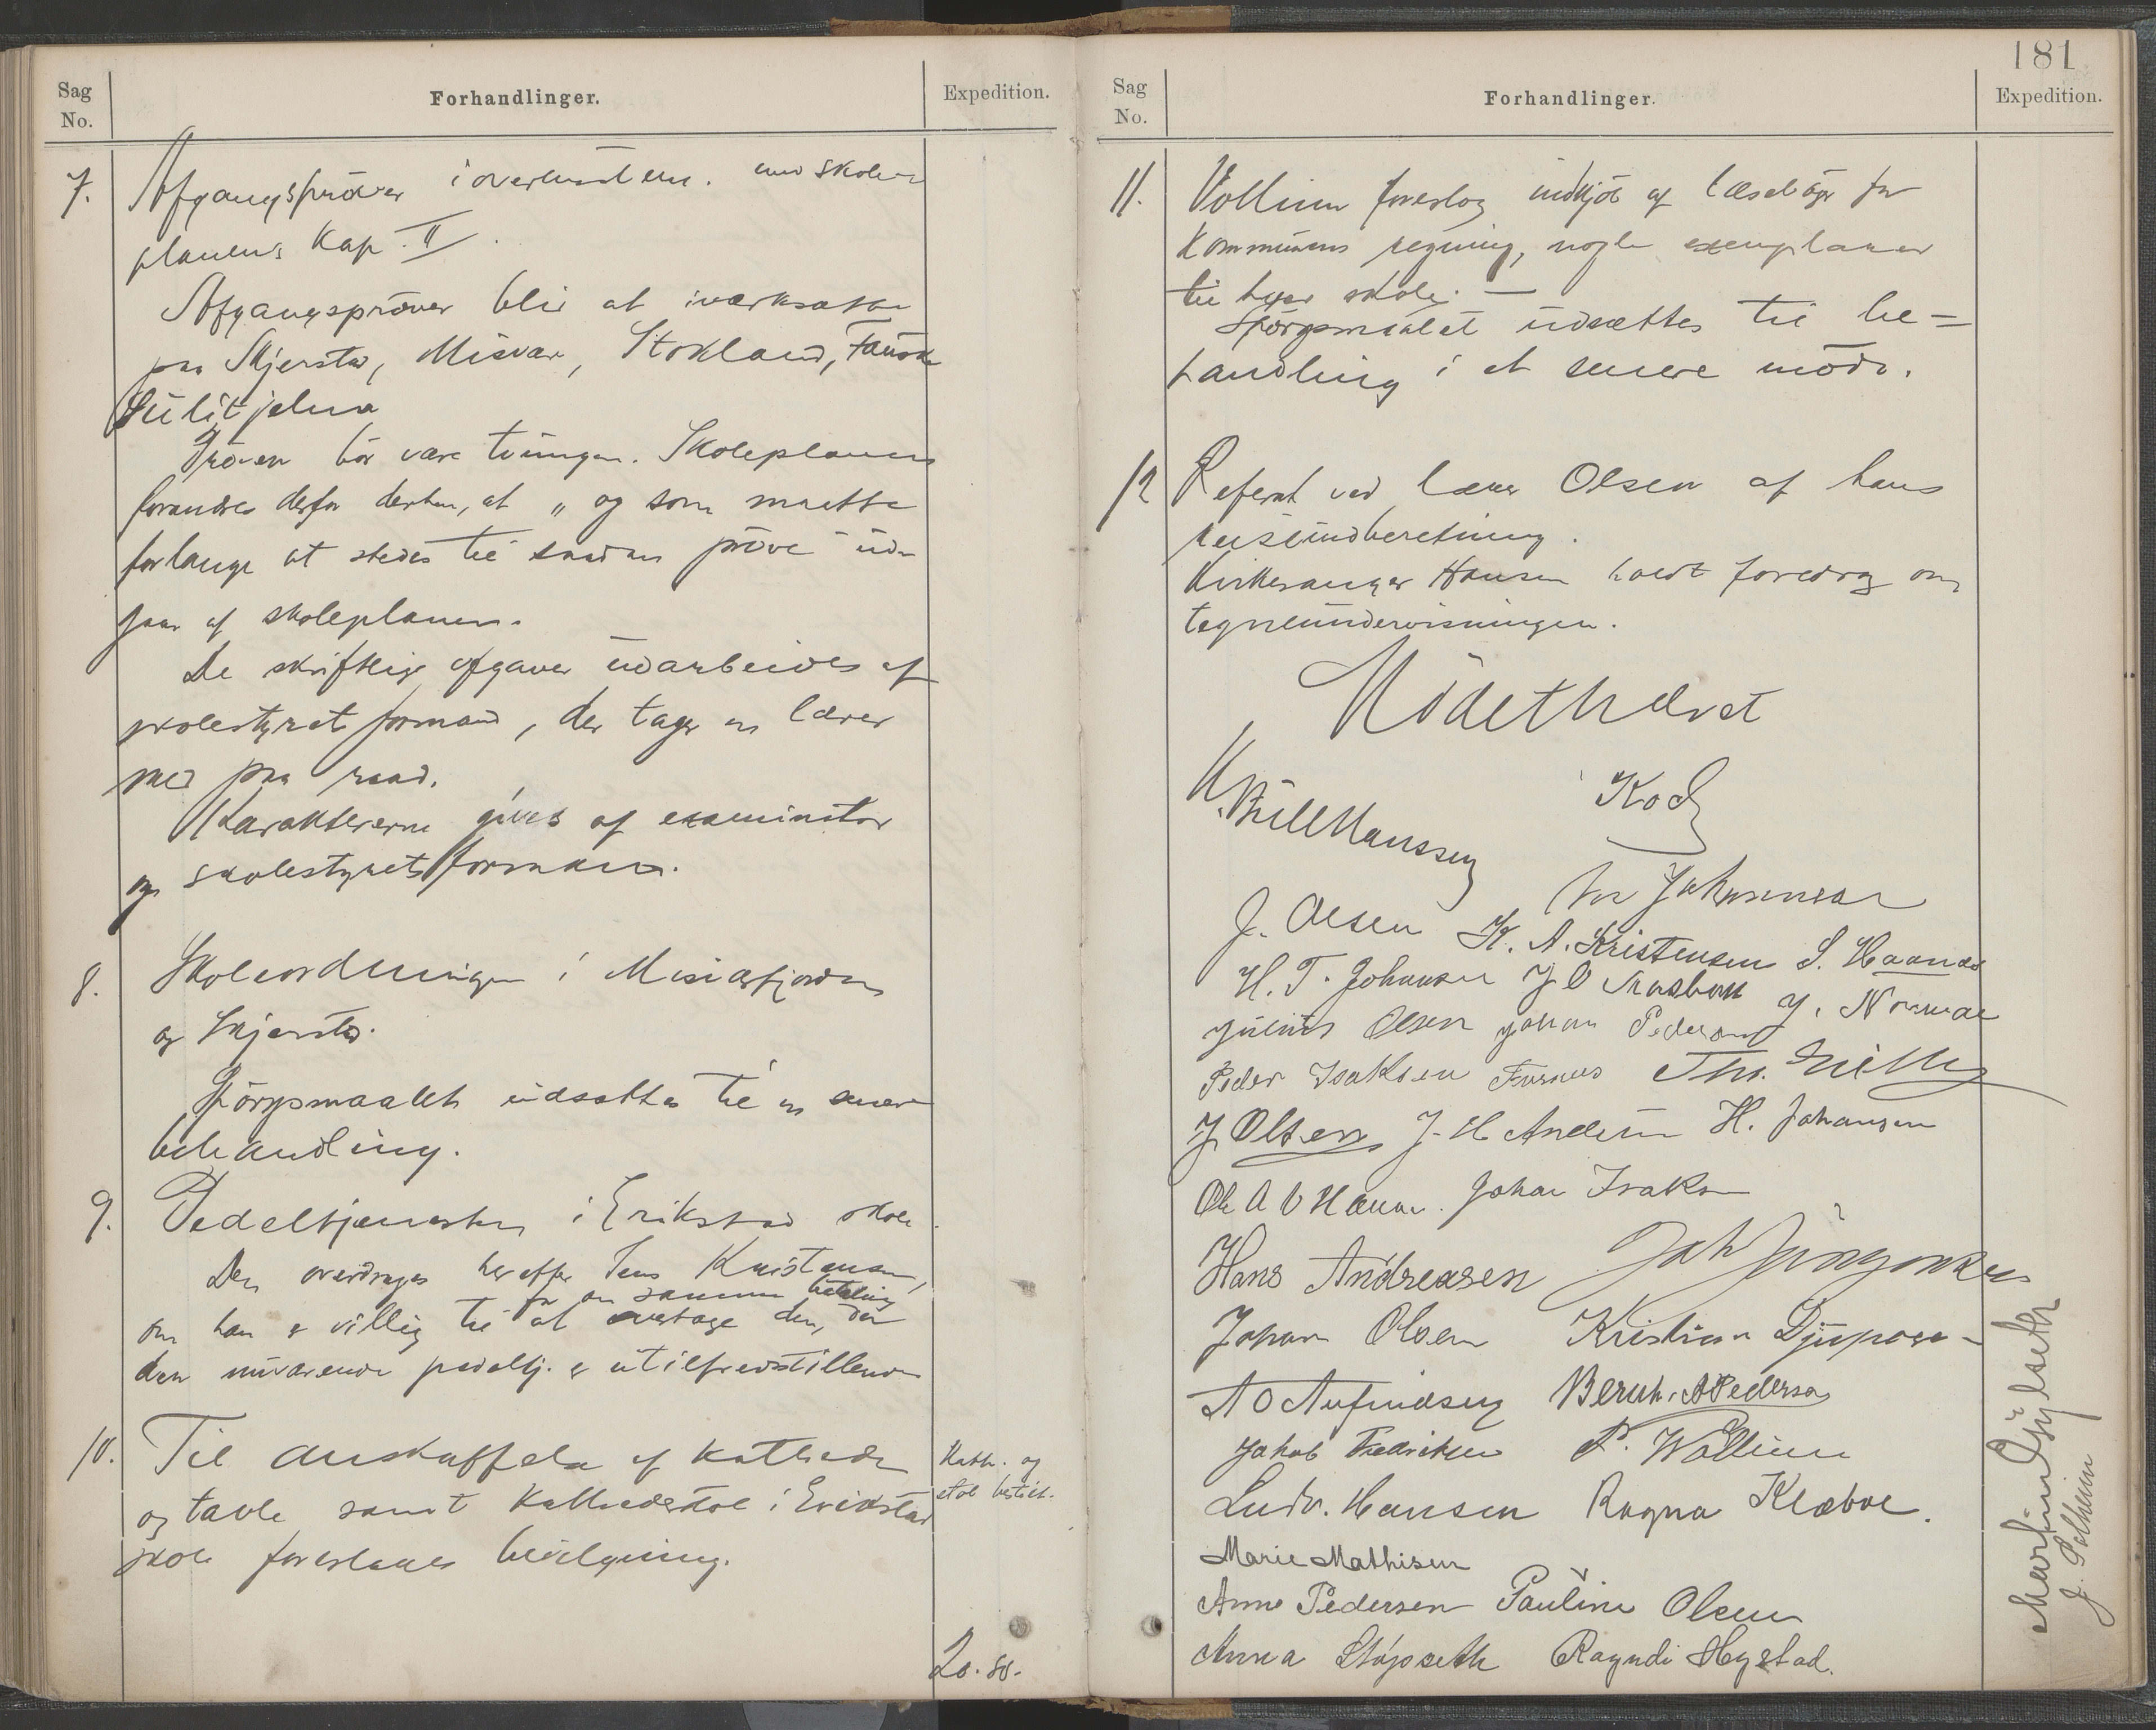 Sag
No.
Forhandlinger.
Expedition.
7.
Afgangsprøver i overensstem. med skole-
planens Kap. II.
Afgangsprøver blir at iværksætte
paa Skjerstad, Misvær, Stokland, Fauske
Sulitjelma
Prøven bør være tvungen. Skoleplanen
forandres derfor derhen, at "og som maatte
forlange at stedes til saadan prøve" ud-
gaar af skoleplanen.
De skriftlige opgaver udarbeides af
skolestyrets formand, der tager en lærer
med paa raad.
Karaktererne gives af examinator
og skolestyrets formand.
8.
Skoleordningen i Misværfjorden
og Skjerstad.
Spörgsmaalet udsættes til en senere
behandling.
9.
Pedeltjenesten i Erikstad skole.
Den overdrages herefter Jens Kristensen,
for den samme betaling
om han er villig til at overtage den, da
den nuværende pedeltj. er utilfredsstillende
10.
Til anskaffelse af kathede
og tavle samt kathederstol i Erikstad
skole foreslaaes bevilgning.
Kath. og
stol bestilt.
20.50.
181
Sag
No.
Forhandlinger.
Expedition.
11.
Vollim foreslog indkjöb af læseböger for
kommunens regning, nogle exemplarer
til hver skole. —
Spörgsmaalet udsættes til be-
handling i et senere möde.
12
Referat ved lærer Olsen af hans
reiseindberetning.
Kirkesanger Hansen holdt foredrag om
tegneundervisningen.
Mödet hævet
K. Bull Hanssen
Koch
J. Olsen
K. A. Kristensen S. Haanes
H. T. Johansen
J. Normae
Julius Olsen Johan Pedersen
Peder Isaksen Furnes
J Olsen J. H Andersen H. Johansen
Johan Isaksen
Hans Andreasen
Johan Olsen Kristian Djupos-
A O Arfindsen Bernh. A Pedersen
Jakob Fredriksen P. Wollim
Ludv. Hansen Ragna Klæboe.
Marie Mathisen
Anne Pedersen Pauline Olsen
Anna Støpseth Ragndi Hystad.
Martin Gylseth
J. Solheim